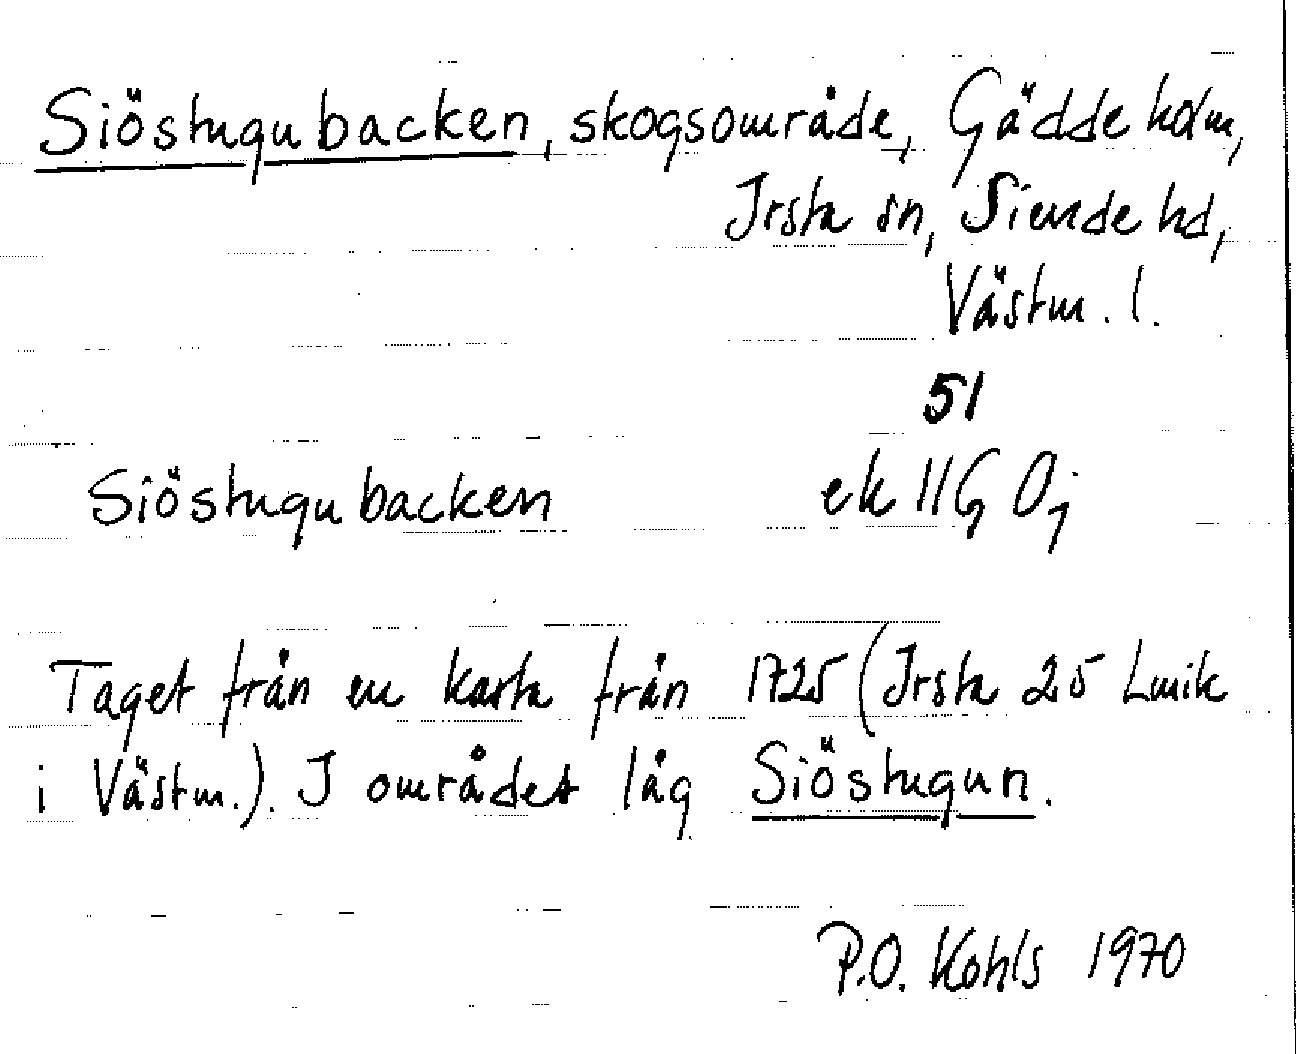 Siöstugubacken, skogsområde, Gäddeholm,
Irsta sn, Siende hd,
Västm. l.
51
Siöstugubacken ek 11G 0j
Taget från en karta från 1725 (Irsta 25 Lmik
i Västm.). I området låg Siöstugun.
P.O. Kohls 1970